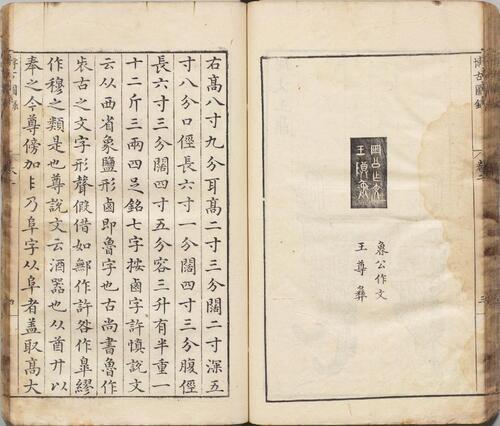 博古圖錄
魯公作文
王尊彝
右高八寸九分耳高二寸三分闊二寸深五
寸八分口徑長六寸一分闊四寸三分腹徑
長六寸三分闊四寸五分容三升有半重一
十二斤三兩四足銘七字按鹵字許慎說文
云从西省象鹽形鹵即魯字也古尚書魯作
古之文字形聲假借如鄦作許咎作臯繆
作穆之類是也尊說文云酒器也从酋廾以
奉之今尊傍加乃阜字从阜者蓋取高大